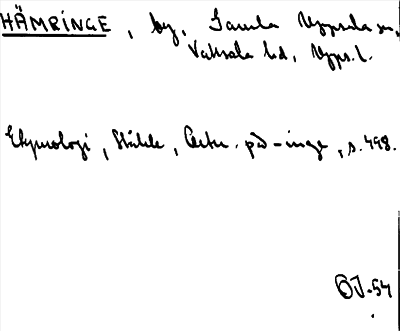 HÄMRINGE, by, Gamla Uppsala sn,
Vaksala hd, Upps. l.
Etymologi, Ståhle, Ortn. på -inge, s. 498.
ÖJ-54